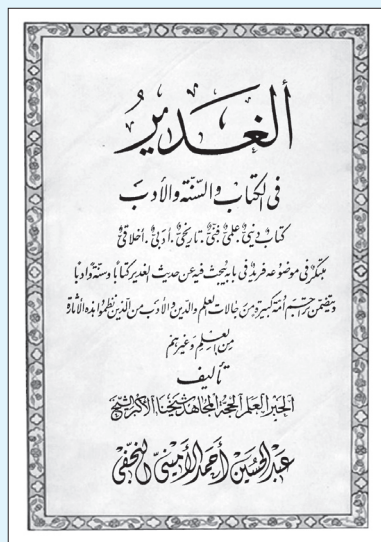 ألغدير
في الكتاب والسنّة والأدب
كتاب دينيّ. علميّ. فنّيّ. تاريخيّ. أدبيّ. أخلاقيّ
مبتكر في موضوعه فريد في بابه يبحث فيه عن حديث الغدير كتاباً وسنّةً وأدباً
ويتضمن تراجيم أمّة كبيرة من رجالات العلم والدين والأدب من الّذين نظموا هذه الأثارة
من العلم وغيرهم
تأليف
الحبر العلم الحجة المجاهد شيخنا الأكبر الشيخ
عبد الحسين أحمد الأمينيّ النجفي